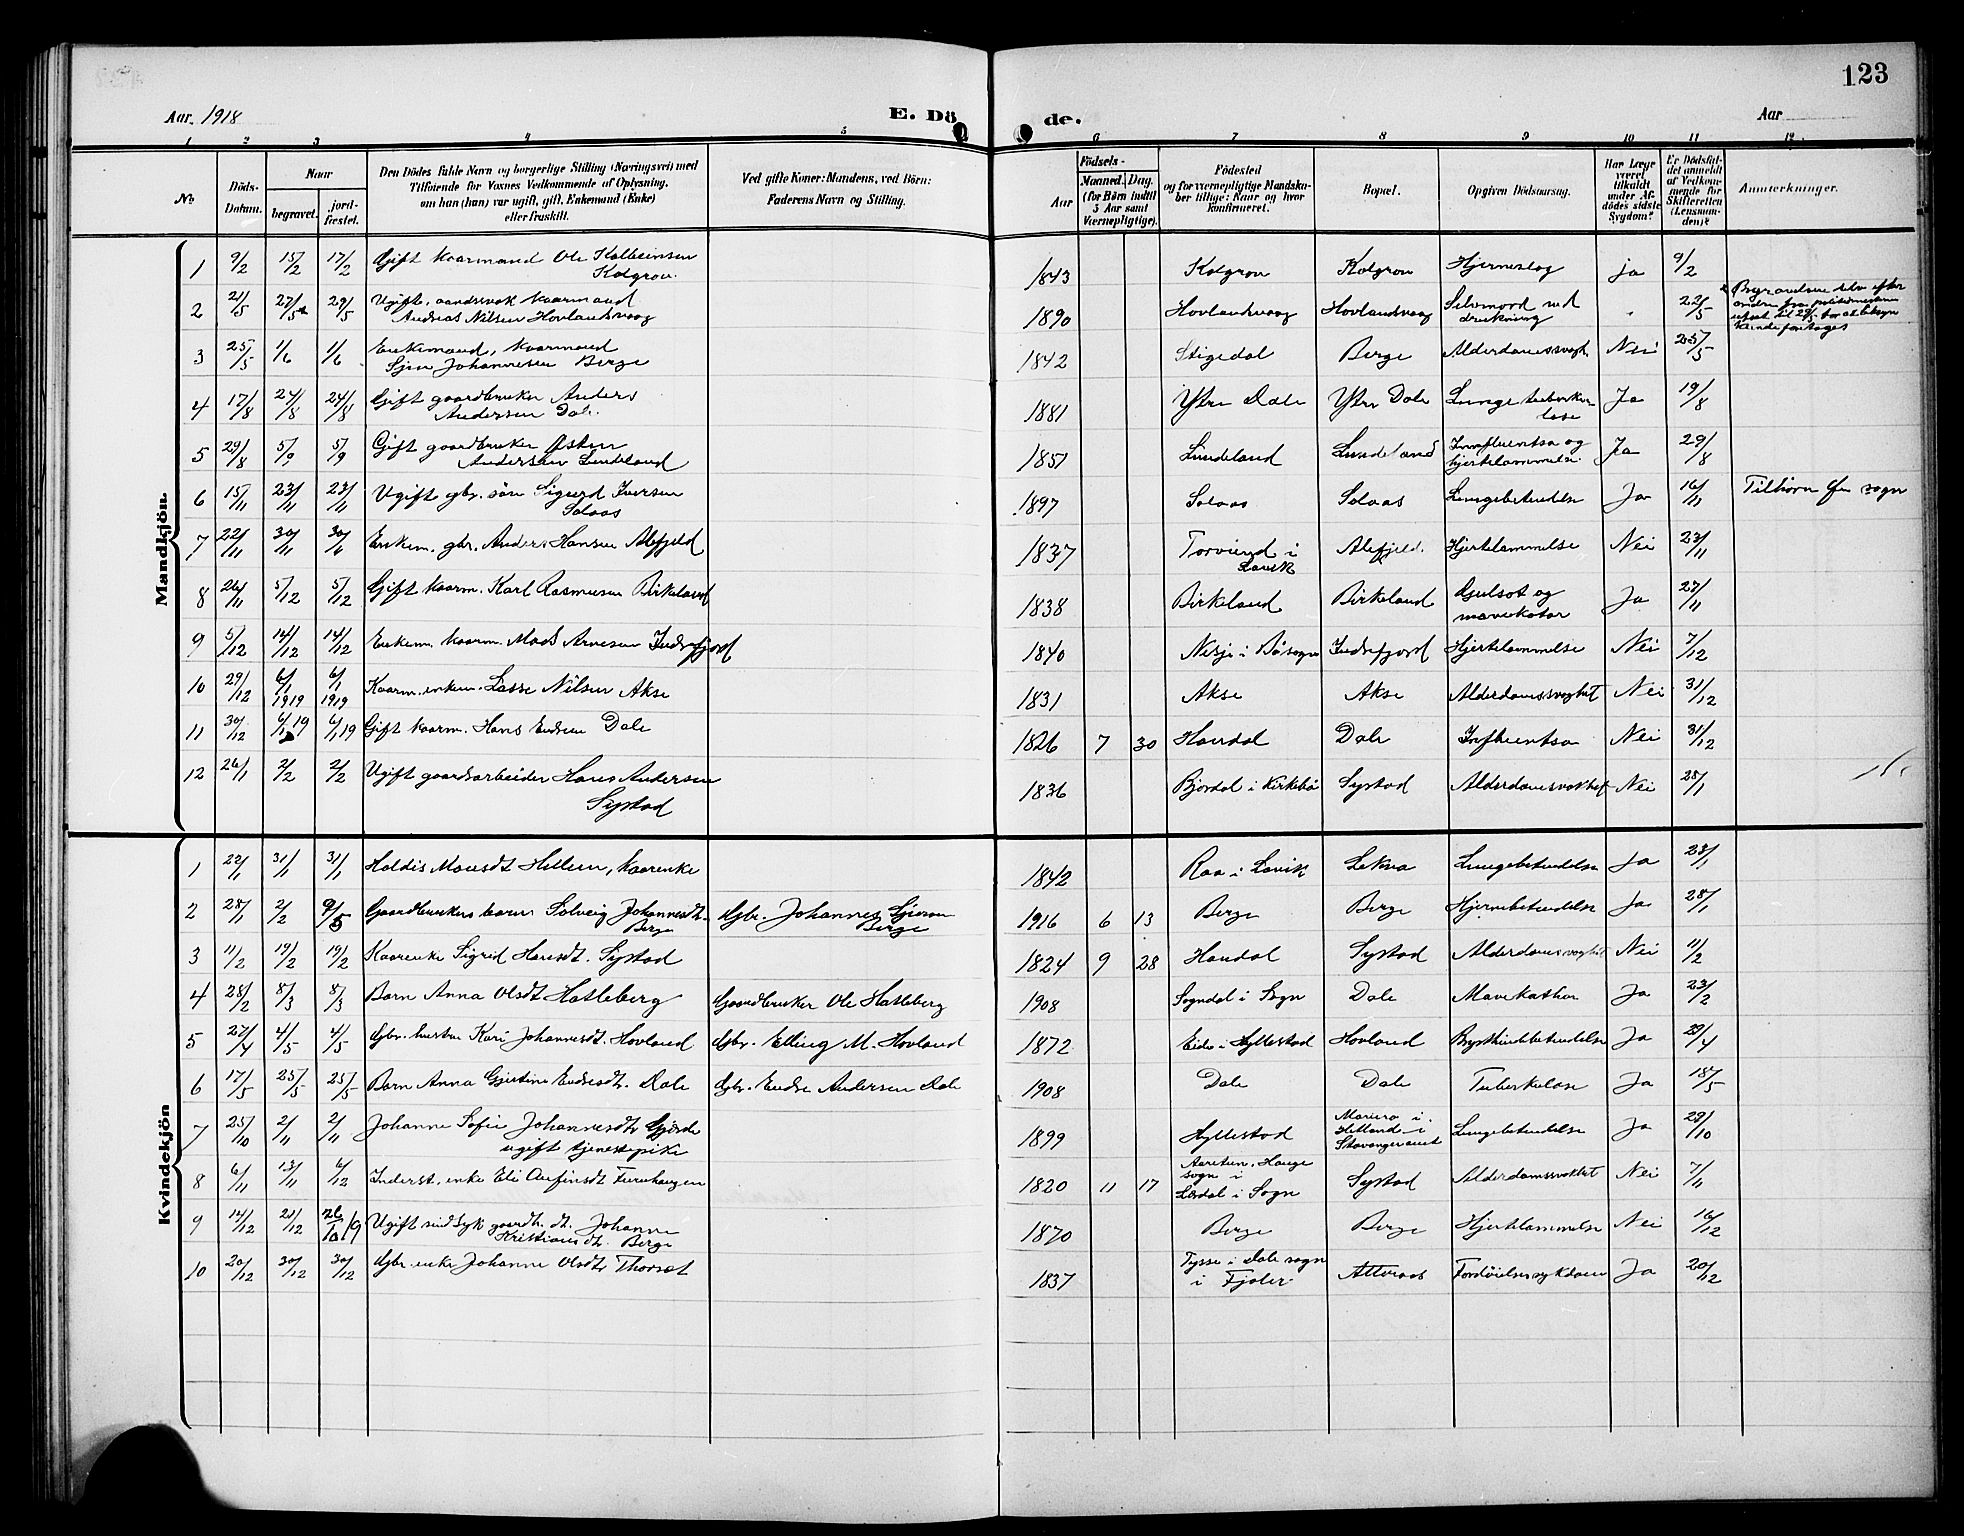 123
Aar. 1918
E. Dö
de.
Aar
1 2 3 4 5 6 7 8 9 10 11 12
No.
Döds-
Datum.
Naar
begravet.
jord-
fæstet.
Den Dödes fulde Navn og borgerlige Stilling (Næringsvei) med
Tilföiende for Voxnes Vedkommende af Oplysning,
om han (hun) var ugift, gift, Enkemand (Enke)
eller fraskilt.
Ved gifte Koner: Mandens, ved Börn:
Faderens Navn og Stilling.
Födsels-
Aar
Maaned. Dag.
(for Børn indtil
5 Aar samt
Værnepligtige).
Födested
og for værnepligtige Mandska-
ber tillige: Naar og hvor
konfirmeret.
Bopæl.
Opgiven Dödsaarsag.
Har Læge
været
tilkaldt
under Af-
dödes sidste
Sygdom?
Er Dödsfal-
det anmeldt
af Vedkom-
mende for
Skifteretten
(Lensman-
den)?
Anmerkninger.
Mandkjön.
1 9/2 15/2 17/2 Gift kaarmand Ole Kolbeinsen
Kolgrov. 1843 Kolgrov Kolgrov Hjerneslag ja 9/2
2 21/5 27/5 29/5 Ugift, aandssvak kaarmand
Andreas Nilsen Hovlandsvaag 1890 Hovlandsvaag Hovlandsvaag Selvmord ved
drukning 22/5
3 25/5 1/6 1/6 Enkemand, kaarmand
Johannesen Berge 1842 Stigedal Berge Alderdomssvagh. Nei 25/5
4 17/8 24/8 24/8 Gift gaardbruker Anders
Andersen Dale 1881 Ytre Dale Ytre Dale Lungetuberku-
lose Ja 19/8
5 29/8 5/9 5/9 Gift gaardbruker
Andersen Lundeland 1851 Lundeland Lundeland Influentsa og
hjertelammelse. Ja 29/8
6 15/11 23/11 23/11 Ugift gbr. søn Sigurd Iversen
Solaas .1897 Solaas Solaas Lungebetendelse Ja 16/11 Tilhører sogn
7 22/11 30/11 30/11 Enkem. gbr. Anders Hansen Alefjeld 1837 Torvund i
Lavik Alefjeld. Hjertelammelse Nei 23/11
8 26/11 5/12 5/12 Gift kaarm. Karl Rasmusen Birkeland 1838 Birkeland Birkeland Gulsot og
mavekatar Ja 27/11
9 5/12 14/12 14/12 Enkem. kaarm. Mads Arnesen Indrefjord 1840 Nesje i Bø sogn Indrefjord Hjertelammelse Nei 7/12
10 29/12 6/1 1919 6/1 1919 Kaarm. enkem. Lasse Nilsen Akse 1831 Akse Akse Alderdomssvaghet Nei 31/12
11 30/12 6/1 19 6/1 19 Gift kaarm. Hans Endresen Dale 1826 7 30 Haudal Dale Influentsa Nei 31/12
12 26/1 2/2 2/2 Ugift gaardsarbeider Hans Andersen
Systad 1836 Bjordal i Kirkebø Systad Alderdomssvakhet Nei 28/1
Kvindekjön
1 22/1 31/1 31/1 Haldis Monsdt Hellem, kaarenke 1842 Raa i Lavik Lekva Lungebetendelse Ja 23/1
2 28/1 2/2 9/5 Gaardbrukers barn Solveig Johannesdt.
Berge Gbr. Johannes
Berge 1916 6 13 Berge Berge Hjernebetendelse Ja 28/1
3 11/2 19/2 19/2 Kaarenke Sigrid Hansdt. Systad 1824 9 28 Haudal Systad Alderdomssvaghet Nei 11/2
4 28/2 8/3 8/3 Barn Anna Olsdt Hatleberg Gaardbruker Ole Hatleberg 1908 Sogndal i Sogn Dale Mavekathar Ja 23/2
5 27/4 4/5 4/5 Gbr. hustru Kari Johannesdt. Hovland Gbr. Elling M. Hovland 1872 Eide i Hyllestad Hovland Brysthindebetendelse Ja 29/4
6 17/5 25/5 25/5 Barn Anna Gjertine Endresdt. Dale Gbr. Endre Andersen Dale 1908 Dale Dale Tuberkulose Ja 18/5
7 25/10 2/11 2/11 Johanne Sofie Johannesdtr
ugift tjenestepike 1899 Hyllestad
Hetland i
Stavanger amt Lungebetendelse Ja 29/10
8 6/11 13/11 6/12 Inderst, enke Eli Anfinsdt Furehaugen 1820 11 17 Hauge
sogn i
Lærdal i Sogn Systad Alderdomssvakhet Nei 7/11
9 14/12 21/12 26/10 19 Ugift sindsyk gaardb. dt. Johanne
Kristiansdt. Berge 1870 Berge Berge Hjertelammelse Nei 16/12
10 20/12 30/12 30/12 Gbr. enke Johanne Olsdtr Thorset 1837 Tysse i Dale sogn
i Fjaler Atteraas Fordøielsessykdom Ja 20/12